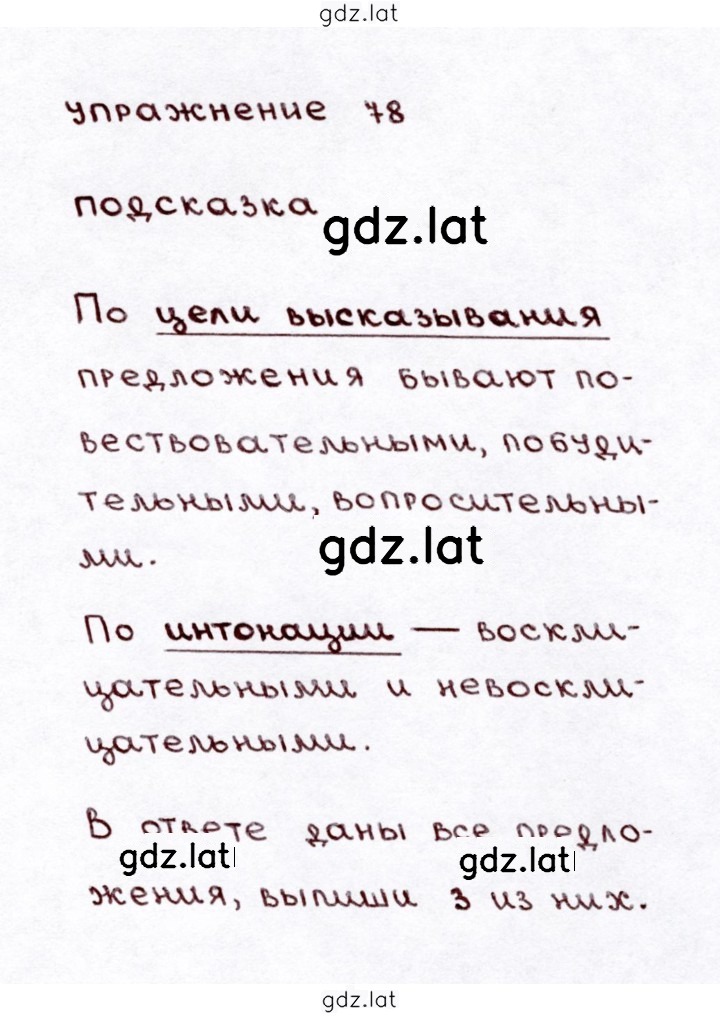 gdz.lat
упражнение 78
подсказка
gdz.lat
По цели высказывания
предложения бывают по-
вествовательными, побуди-
тельными, вопросительны-
ми.
gdz.lat
По интонации — воскли-
цательными и невоскли-
цательными.
В ответе даны все предло-
gdz.lat gdz.lat
жения, выпиши 3 из них.
gdz.lat